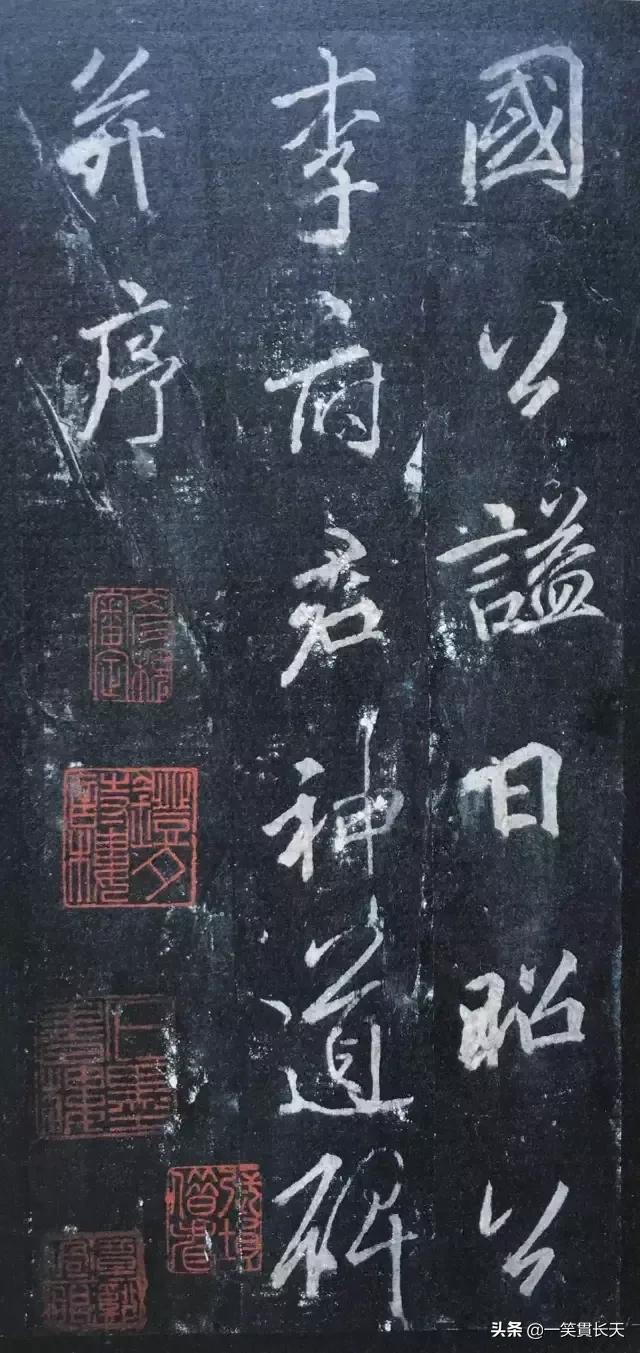 國公謚曰昭公
李府君神道碑
并序
头条 @一笑貫长天